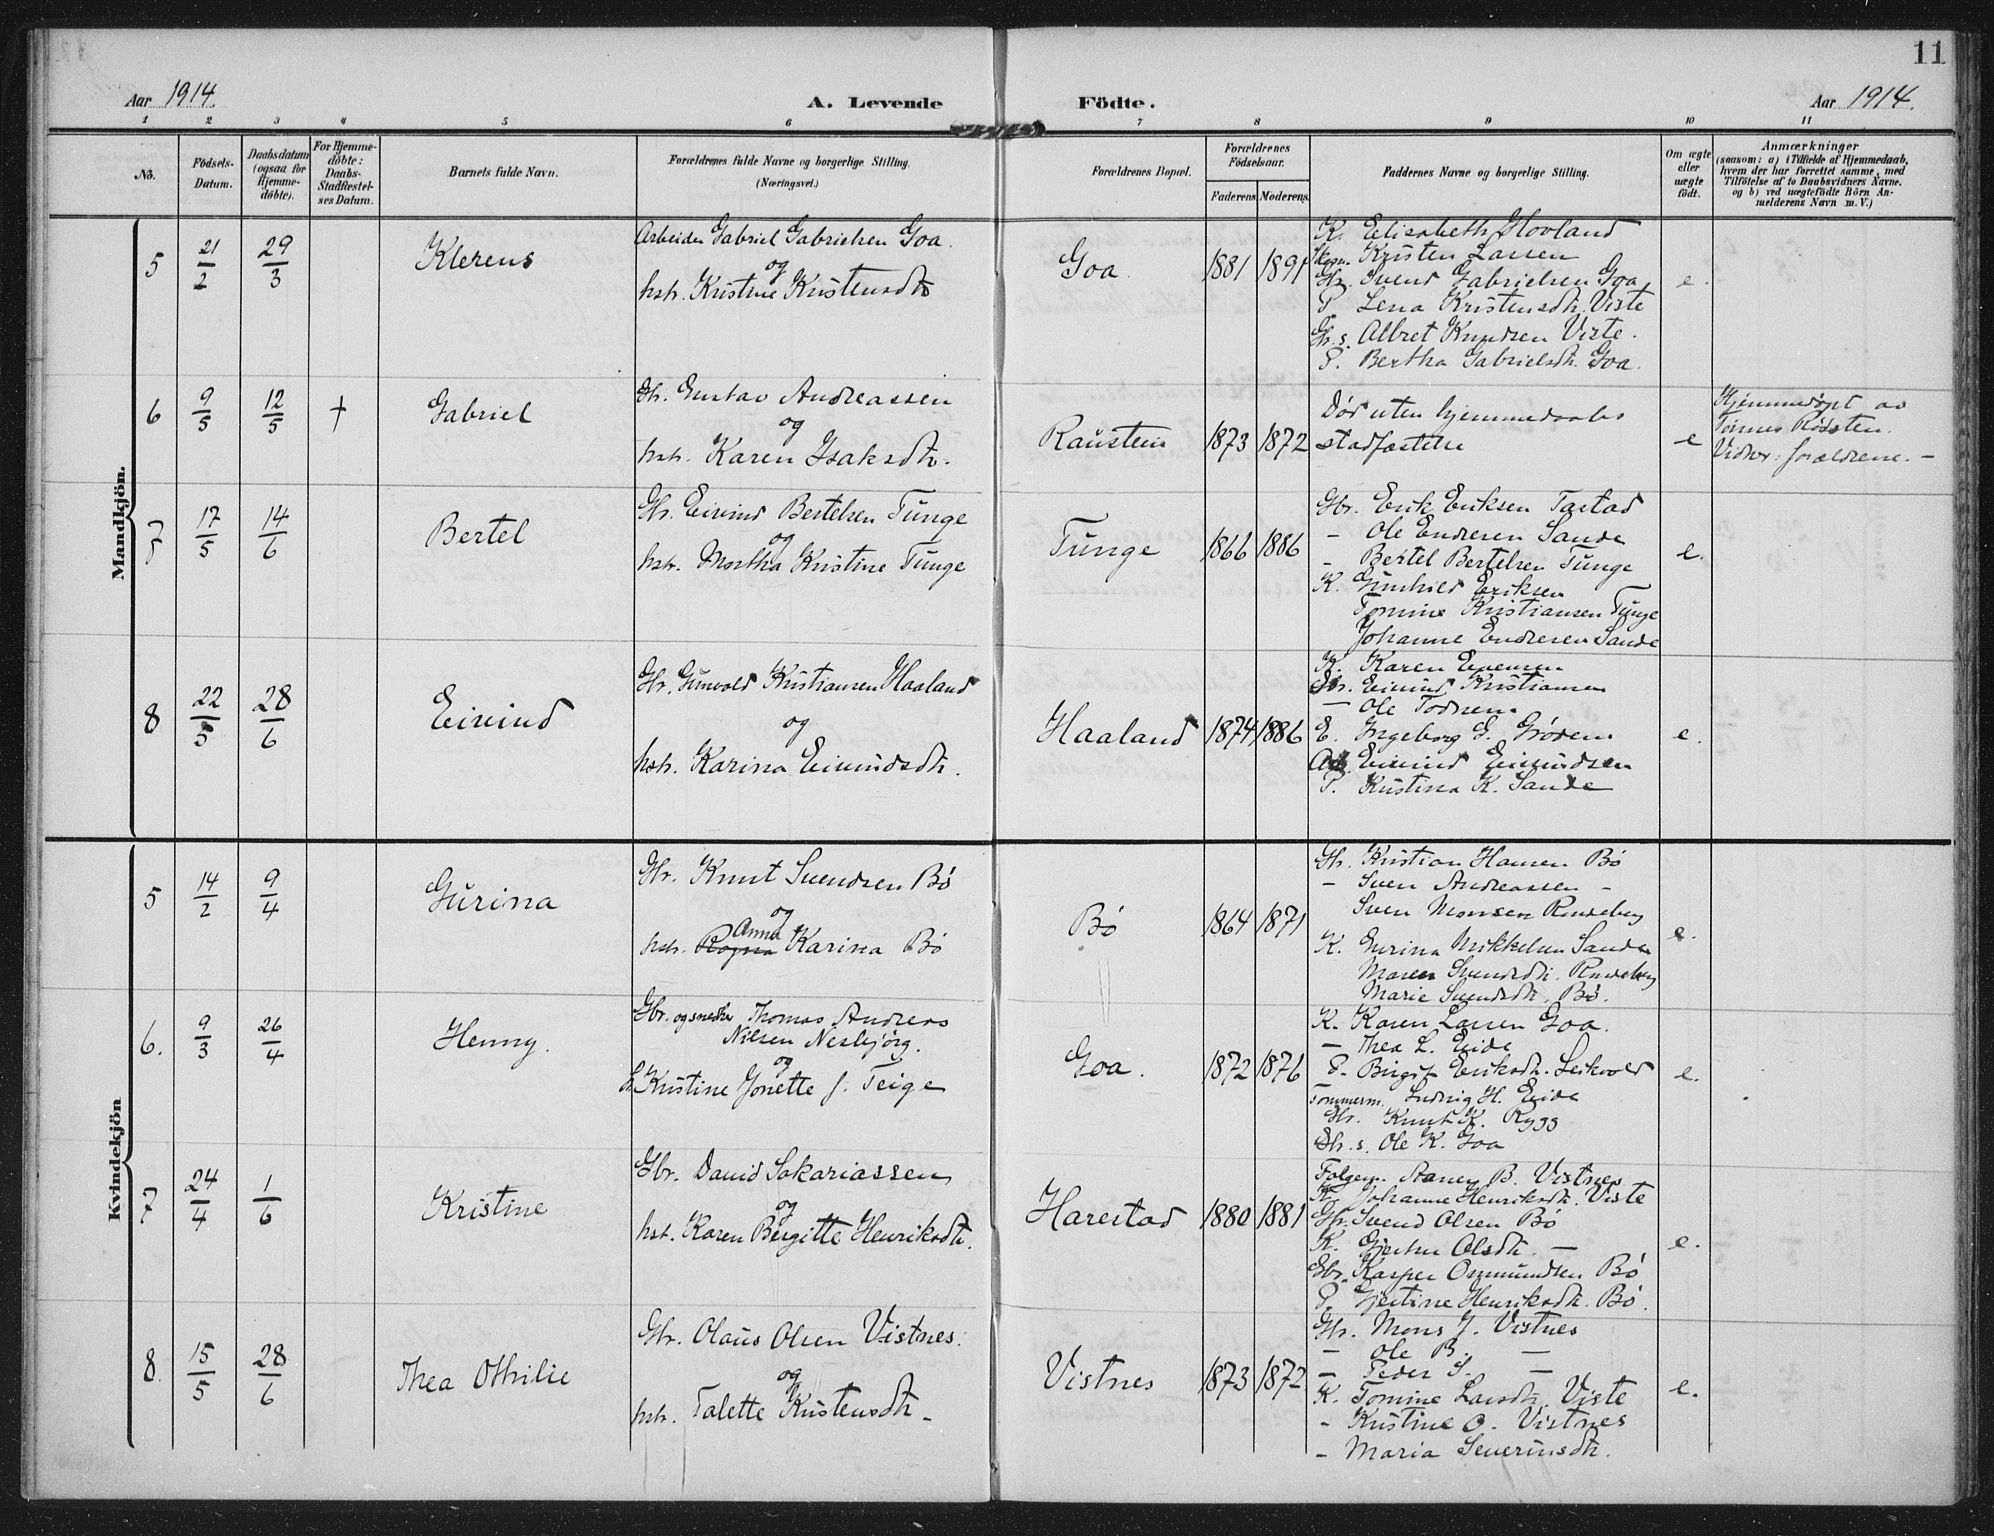 11
Aar 1914.
A. Levende Födte.
Aar 1914.
1 2 3 4 5 6 7 8 9 10 11
No.
Födsels-
Datum.
Daabsdatum
(ogsaa for
Hjemme-
döbte).
For Hjemme-
döbte:
Daabs-
Stadfæstel-
ses Datum.
Barnets fulde Navn.
Forældrenes fulde Navne og borgerlige Stilling.
(Næringsvei.)
Forældrenes Bopæl.
Forældrenes
Födselsaar.
Faderens Moderens
Faddernes Navne og borgerlige Stilling.
Om ægte
eller
uægte
födt.
Anmærkninger
(saasom: a) i Tilfælde af Hjemmedaab,
hvem der har forrettet samme, med
Tilföielse af to Daabsvidners Navne.
og b) ved uægtefödte Börn An-
melderens Navn m. V.)
Mandkjön.
5 21/2 29/3 Klerens
Arbeider Gabriel Gabrielsen Goa.
og
hstr. Kristine Kristensdtr
Goa. 1881 1891
K. Elisabeth Hovland
Skogm. Kristen Larsen
Gbr. Svend Gabrielsen Goa,
P. Lena Kristensdtr. Viste
Gbr. s. Albret Knudsen Viste.
P. Bertha Gabrielsdtr. Goa.
e.
6 9/5 12/5 † Gabriel
Gbr. Gustav Andreassen
og
hstr. Karen Isaksdtr.
Raustein 1873 1872
Död uten hjemmedaabs
stadfæstelse
e
Hjemmedöpt av
Tönnes Rödsten.
Vidner: forældrene. -
7 17/5 14/6 Bertel
Gbr. Eivind Bertelsen Tunge
og
hstr. Martha Kristine Tunge
Tunge 1866 1886
Gbr. Erik Eriksen Tastad
- Ole Endresen Sande
- Bertel Bertelsen Tunge
K. Gunhild Eriksen
Tomine Kristiansen Tunge
Johanne Endresen Sande
e.
8 22/5 28/6 Eivind
Gbr. Gunvald Kristiansen Haaland
og
hstr. Karina Eivindsdtr.
Haaland 1874 1886
K. Karen Evensen
Gbr. Eivind Kristiansen
- Ole Todnem
E. Ingeborg G. Grödem
Arb. Eivind Eivindsen
P. Kristina K. Sande
e.
Kvindekjön
5 14/2 9/4 Gurina
Gbr. Knut Svendsen Bö
og
Anna
hstr. Ragna Karina Bö
Bö 1864 1871
Gbr. Kristian Hansen Bö
- Sven Andreassen -
Sven Monsen Randeberg
K. Gurina Mikkelsen Sande
Maren Svendsdtr. Randeberg
Marie Svendsdtr. Bö.
e.
6. 9/3 26/4 Henny.
Gbr. og smeder Thomas Andreas
Nilsen Nesbjörg.
og
h. Kristine Jonette f. Teige
Goa. 1872 1876
K. Karen Larsen Goa.
- Thea L. Eide
P. Birgit Eriksdtr. Leikvold
Tömmerm. Ludvig H. Eide
Gbr. Knut K. Rygg
Gbr. s. Ole K. Goa
e.
7 24/4 1/6 Kristine
Gbr. David Sakariassen
og
hst. Karen Bergitte Henriksdtr.
Harestad 1880 1881
B. Vistnes
K. Johanne Henriksdtr. Viste
Gbr. Svend Olsen Bö
K. Olsdtr. -
Gbr. Kasper Ommundsen Bö
P. Gjertine Henriksdtr. Bö.
e.
8. 15/5 28/6 Thea Othilie
Gbr. Olaus Olsen Vistnes.
og
hstr. Talette Kristensdtr. -
Vistnes 1873 1872
Gbr. Mons J. Vistnes
- Ole B. -
- Peder S. -
K. Tomine Larsdtr. Viste
- Kristine O. Vistnes
- Maria Severinsdtr.
e.